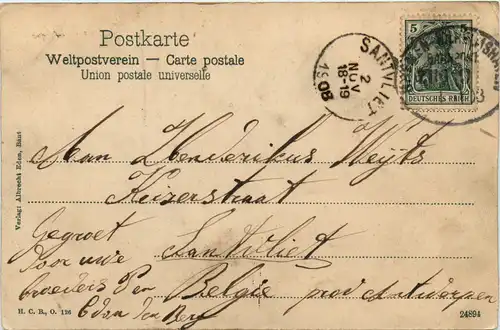 Postkarte
Weltpostverein — Carte postale
Union postale universelle
5
DEUTSCHES REICH
SANTVLIET
2
NOV
18-19
1908
Verlag: Albrecht Eden, Bant
Aan Henderikus Weijts
Keizerstraat
Santvliet
Belgie prov Antwerpen
Gegroet
Door uwe
broeders P en
Eden den Berg
H. C. B., O. 126
24894